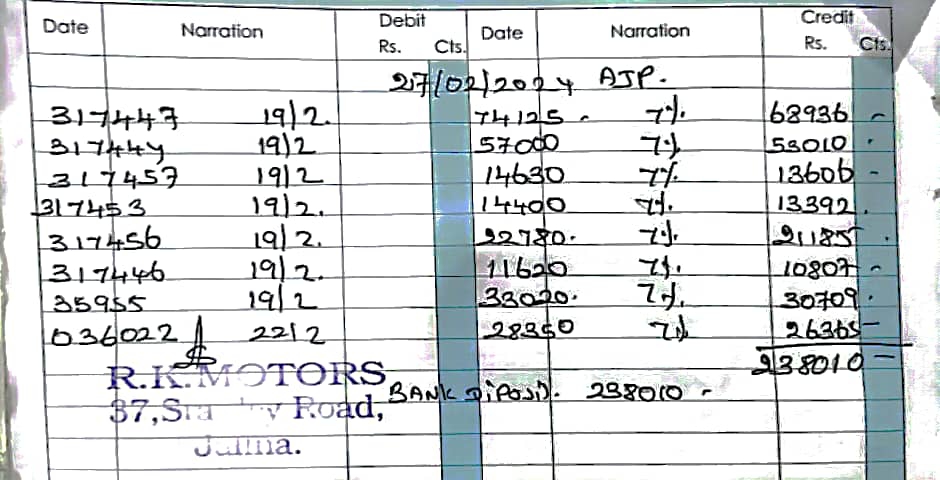 Date Narration Debit Rs. Cts. Date Narration Credit Rs. Cts.
27/02/2024 AJP.
317447 19/2. 74125 - 7%. 68936 -
317444 19/2 57000 7%. 53010 -
317457 19/2 14630 7%. 13606 -
317453 19/2. 14400 7%. 13392.
317456 19/2. 22780. 7%. 21185.
317446 19/2. 11620 7%. 10807 -
35955 19/2 33020. 7%. 30709.
036022 22/2 28350 7% 26365 -
238010 -
R.K.MOTORS
BANK Diposit. 238010 -
37, Road,
Jaffna.